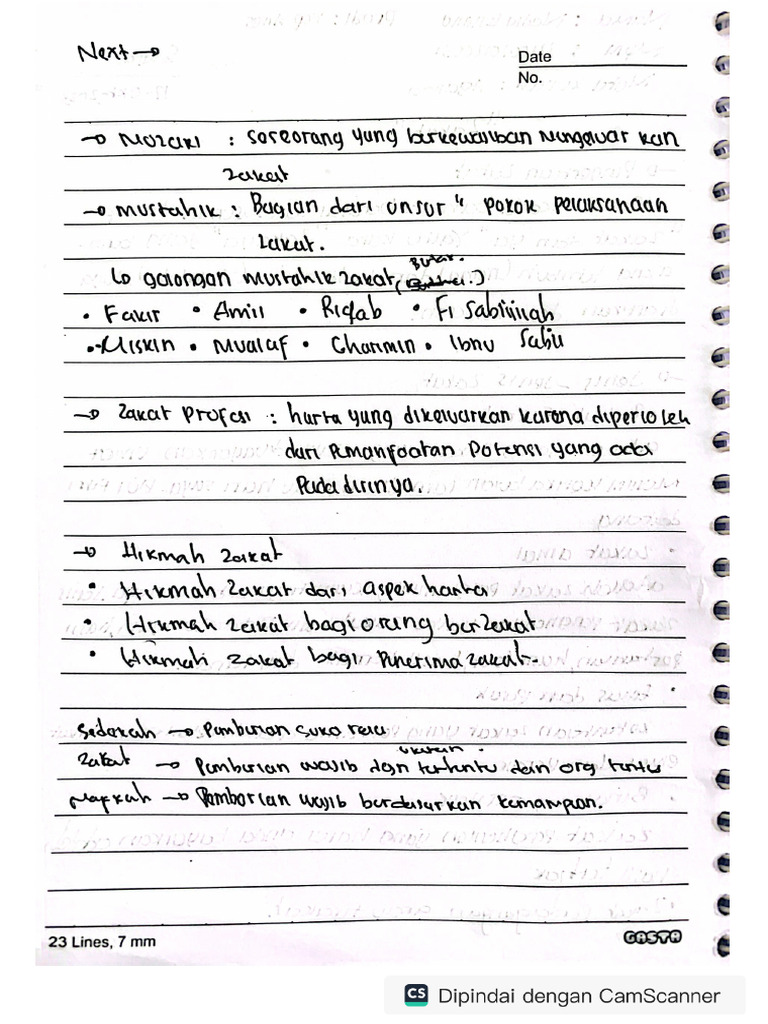 Next →
Date
No.
→ Mozaki : Seseorang yang berkewajiban Mengeluarkan
zakat
→ Mustahik : Bagian dari unsur" pokok pelaksanaan
zakat.
↳ golongan mustahik zakat (
• Fakir • Amil • Riqab • Fi Sabilillah
• Miskin • Mualaf • Gharimin • Ibnu Sabil
→ Zakat Profesi : harta yang dikeluarkan karena diperoleh
dari Pemanfaatan Potensi yang ada
Pada dirinya.
→ Hikmah Zakat
• Hikmah Zakat dari aspek harta
• Hikmah zakat bagi orang berzakat
• Hikmah zakat bagi Penerima zakat.
Sedekah → Pemberian suka rela
ukuran
Zakat → Pemberian wajib dgn tertentu dan org tentu
Nafkah → Pemberian wajib berdasarkan kemampuan.
23 Lines, 7 mm
GASTA
CS Dipindai dengan CamScanner